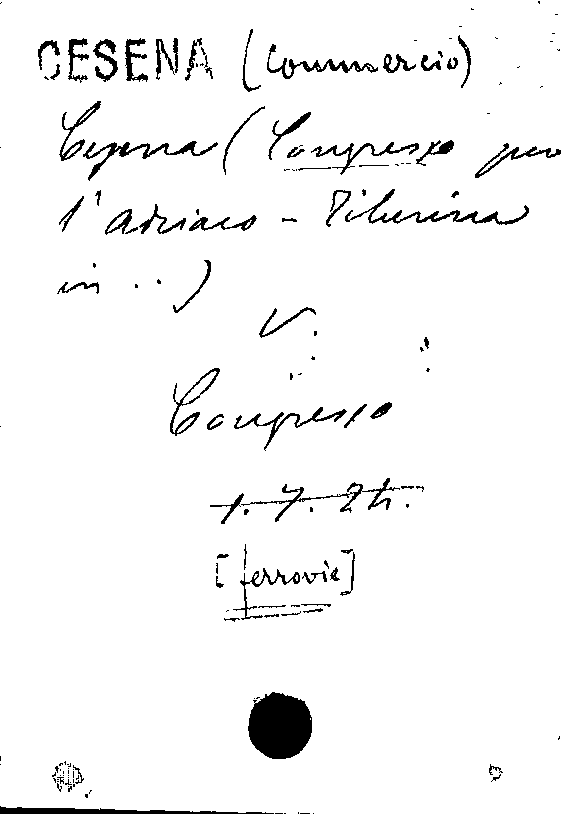 CESENA (Commercio)
Cesena (Congresso per
l'Adriaco - Tiberina
in ..)
V.
Congresso
1. 7. 24.
[ferrovie]